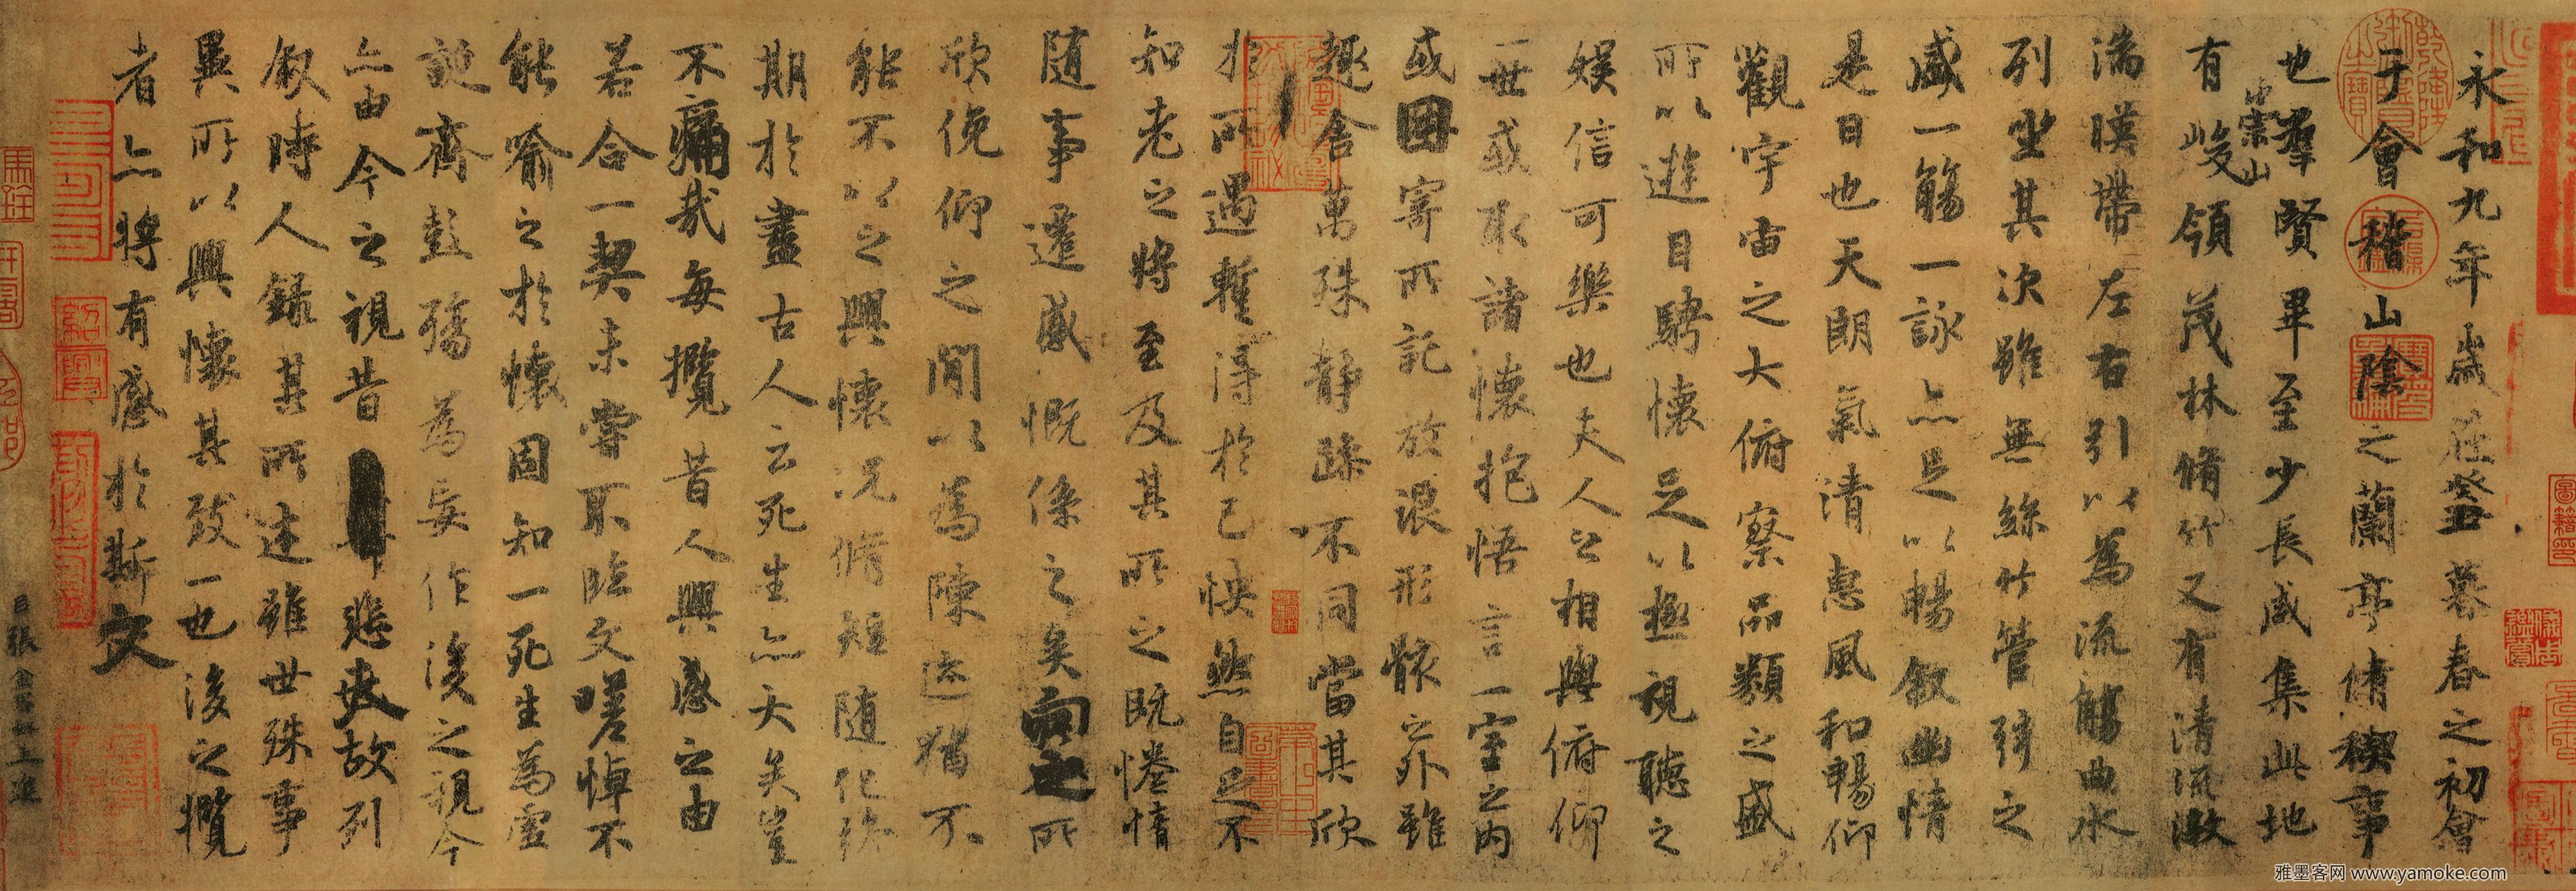 永和九年歲在癸丑暮春之初會
于會稽山陰之蘭亭脩稧事
也羣賢畢至少長咸集此地
有崇山峻領茂林脩竹又有清流激
湍暎帶左右引以為流觴曲水
列坐其次雖無絲竹管弦之
盛一觴一詠亦足以暢敘幽情
是日也天朗氣清惠風和暢仰
觀宇宙之大俯察品類之盛
所以遊目騁懷足以極視聽之
娛信可樂也夫人之相與俯仰
一世或取諸懷抱悟言一室之內
或因寄所託放浪形骸之外雖
趣舍萬殊靜躁不同當其欣
於所遇暫得於己怏然自足不
知老之將至及其所之既惓情
隨事遷感慨係之矣向之所
欣俛仰之閒以為陳迹猶不
能不以之興懷況脩短隨化終
期於盡古人云死生亦大矣豈
不痛哉每攬昔人興感之由
若合一契未嘗不臨文嗟悼不
能喻之於懷固知一死生為虛
誕齊彭殤為妄作後之視今
亦由今之視昔悲夫故列
敘時人錄其所述雖世殊事
異所以興懷其致一也後之攬
者亦將有感於斯文
臣張金界奴上進
雅墨客网 www.yamoke.com